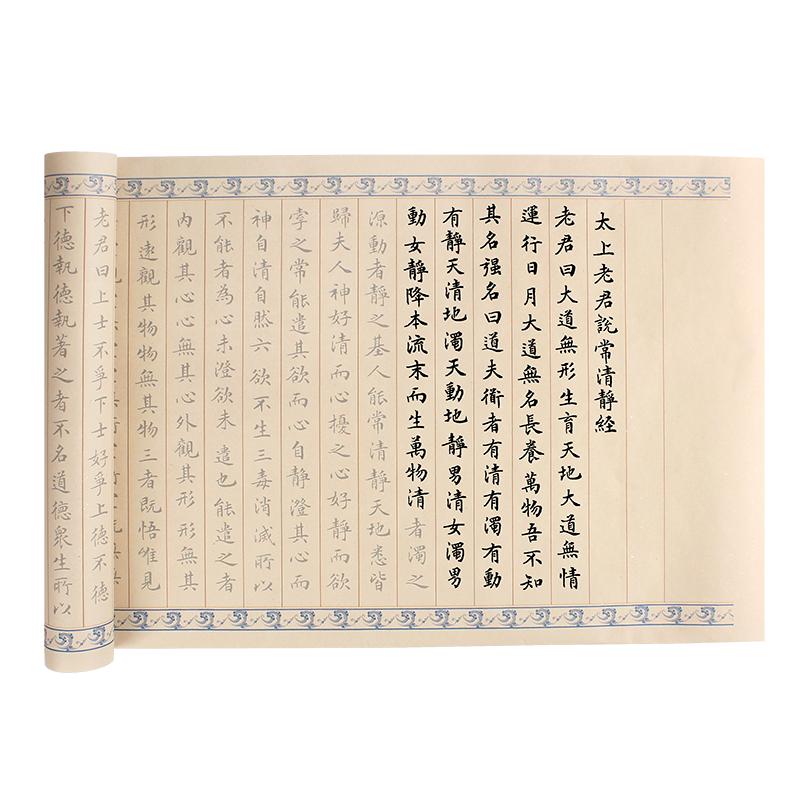 太上老君說常清靜經
老君曰大道無形生育天地大道無情
運行日月大道無名長養萬物吾不知
其名强名曰道夫衜者有清有濁有動
有靜天清地濁天動地靜男清女濁男
動女靜降本流末而生萬物清者濁之
源動者靜之基人能常清靜天地悉皆
歸夫人神好清而心擾之心好靜而欲
牽之常能遣其欲而心自靜澄其心而
神自清自然六欲不生三毒消滅所以
不能者為心未澄欲未遣也能遣之者
內觀其心心無其心外觀其形形無其
形遠觀其物物無其物三者既悟唯見
老君曰上士不爭下士好爭上德不德
下德執德執著之者不名道德眾生所以